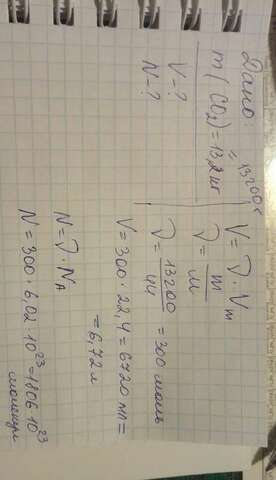 Дано:
m(CO₂)=13,2кг
= 13200г
V-?
N-?
V = ν · Vm
ν = m/M
ν = 13200/44 = 300 моль
V = 300 · 22,4 = 6720 мл =
= 6,72 л
N = ν · NA
N = 300 · 6,02 · 10²³ = 1806 · 10²³
молекул